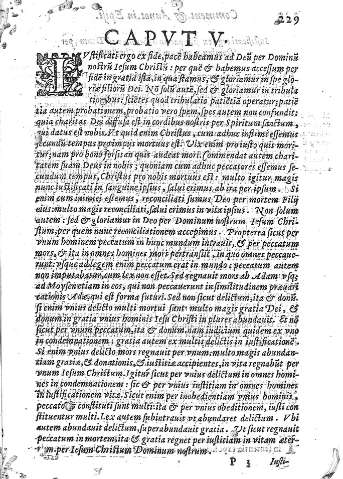 229
CAPVT V.
IVstificati ergo ex fide, pacē habeamus ad Deū per Dominū
nostrū Iesum Christū: per quē & habemus accessum per
fidē in gratia istā, in qua stamus, & gloriamur in spe glo-
riæ filiorū Dei. Nō solū autē, sed & gloriamur in tribula
tionibus: scietes quod tribulatio patiētiā operatur: patiē
tia autem probationem, probatio verò spem, spes autem non confundit:
quia charitas Dei diffusa est in cordibus nostris per Spiritum sanctum,
qui datus est nobis. Vt quid enim Christus, cum adhuc infirmi essemus
secundū tempus pro impijs mortuus est? Vix enim pro iusto quis mori-
tur; nam pro bono forsitan quis audeat mori. Commendat autem chari-
tatem suam Deus in nobis: quoniam cum adhuc peccatores essemus se-
cundum tempus, Christus pro nobis mortuus est: multo igitur magis
nunc iustificati in sanguine ipsius, salui erimus ab ira per ipsum. Si
enim cum inimici essemus, reconciliati sumus Deo per mortem Filij
eius: multo magis reconciliati, salui erimus in vita ipsius. Non solum
autem: sed & gloriamur in Deo per Dominum nostrum Iesum Chri-
stum, per quem nunc reconciliationem accepimus. Propterea sicut per
vnum hominem peccatum in hunc mundum intrauit, & per peccatum
mors, & ita in omnes homines mors pertransijt, in quo omnes peccaue-
runt: vsque ad legem enim peccatum erat in mundo: peccatum autem
non imputabatur, cum lex non esset. Sed regnauit mors ab Adam vsq;
ad Moysen etiam in eos, qui non peccauerunt in similitudinem præuari
cationis Adæ, qui est forma futuri. Sed non sicut delictum, ita & donū:
si enim vnius delicto multi mortui sunt: multo magis gratia Dei, &
donum in gratia vnius hominis Iesu Christi in plures abundauit. Et nō
sicut per vnum peccatum, ita & donum: nam iudicium quidem ex vno
in condemnationem: gratia autem ex multis delictis in iustificationē.
Si enim vnius delicto mors regnauit per vnum: multo magis abundan-
tiam gratiæ, & donationis, & iustitiæ accipientes, in vita regnabūt per
vnum Iesum Christum. Igitur sicut per vnius delictum in omnes homi-
nes in condemnationem: sic & per vnius iustitiam in omnes homines
in iustificationem vitæ. Sicut enim per inobedientiam vnius hominis,
peccatores constituti sunt multi: ita & per vnius obeditionem, iusti con
stituentur multi. Lex autem subintrauit vt abundaret delictum. Vbi
autem abundauit delictum, superabundauit gratia. Vt sicut regnauit
peccatum in mortem, ita & gratia regnet per iustitiam in vitam æter-
nam, per Iesum Christum Dominum nostrum.
P 3 Iusti-